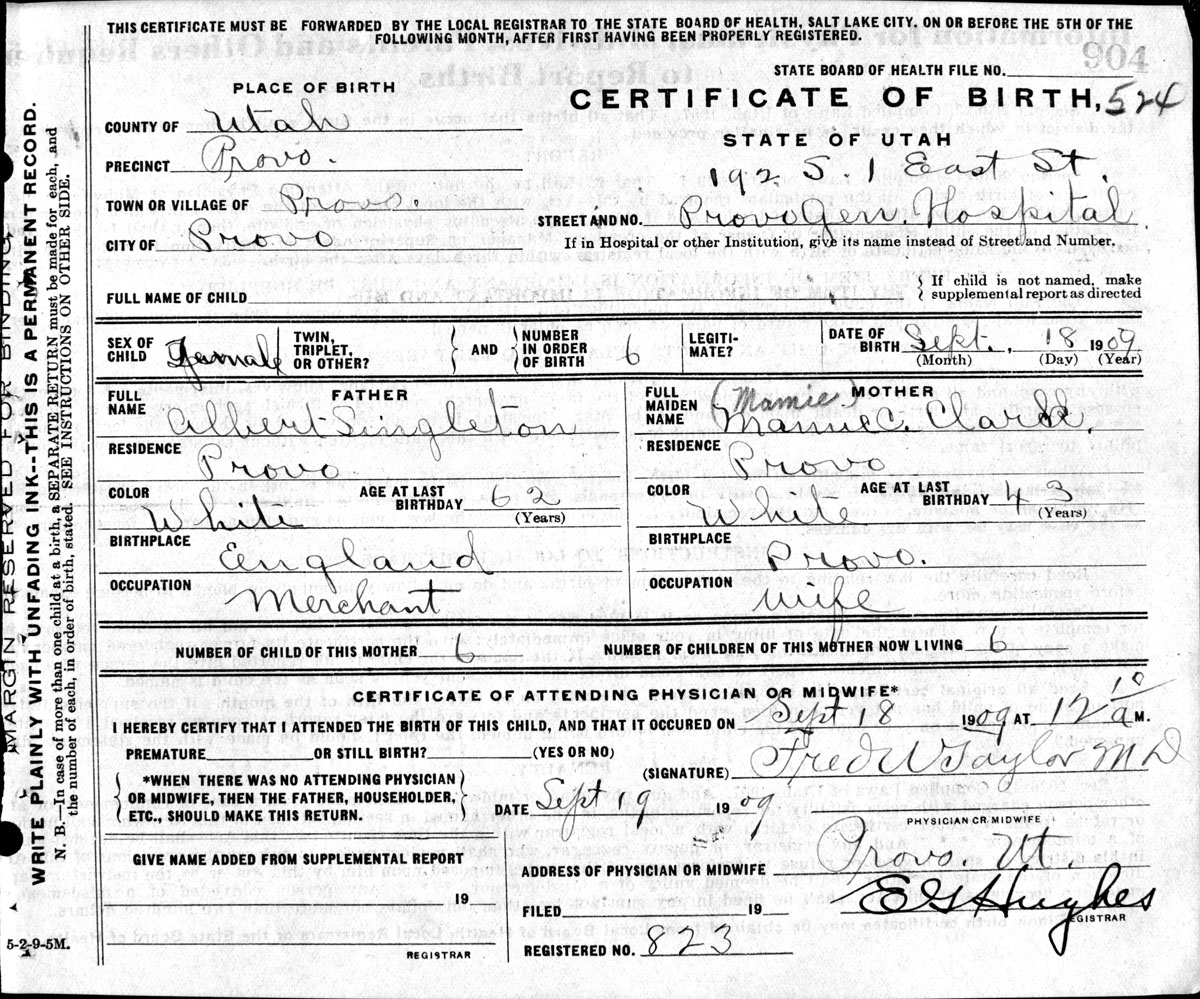 THIS CERTIFICATE MUST BE FORWARDED BY THE LOCAL REGISTRAR TO THE STATE BOARD OF HEALTH, SALT LAKE CITY, ON OR BEFORE THE 5TH OF THE
FOLLOWING MONTH, AFTER FIRST HAVING BEEN PROPERLY REGISTERED.
904
STATE BOARD OF HEALTH FILE NO.
PLACE OF BIRTH
CERTIFICATE OF BIRTH, 524
STATE OF UTAH
COUNTY OF Utah
PRECINCT Provo.
192 S. 1 East St.
TOWN OR VILLAGE OF Provo.
STREET AND NO. Provo Gen Hospital
CITY OF Provo
If in Hospital or other Institution, give its name instead of Street and Number.
FULL NAME OF CHILD
If child is not named, make
supplemental report as directed
SEX OF CHILD Female
TWIN, TRIPLET, OR OTHER?
AND
NUMBER IN ORDER OF BIRTH 6
LEGITI-MATE?
DATE OF BIRTH Sept. 18 1909
(Month) (Day) (Year)
FATHER
FULL NAME Albert Singleton
RESIDENCE Provo
COLOR White
AGE AT LAST BIRTHDAY 62
(Years)
BIRTHPLACE England
OCCUPATION Merchant
MOTHER
(Mamie)
FULL MAIDEN NAME Mamie C. Clark.
RESIDENCE Provo
COLOR White
AGE AT LAST BIRTHDAY 43
(Years)
BIRTHPLACE Provo.
OCCUPATION Wife
NUMBER OF CHILD OF THIS MOTHER 6
NUMBER OF CHILDREN OF THIS MOTHER NOW LIVING 6
CERTIFICATE OF ATTENDING PHYSICIAN OR MIDWIFE*
I HEREBY CERTIFY THAT I ATTENDED THE BIRTH OF THIS CHILD, AND THAT IT OCCURED ON Sept 18 1909 AT 12 10 a M.
PREMATURE OR STILL BIRTH? (YES OR NO)
(SIGNATURE) Fred W Taylor M D
*WHEN THERE WAS NO ATTENDING PHYSICIAN
OR MIDWIFE, THEN THE FATHER, HOUSEHOLDER,
ETC., SHOULD MAKE THIS RETURN.
DATE Sept 19 1909
PHYSICIAN OR MIDWIFE
GIVE NAME ADDED FROM SUPPLEMENTAL REPORT
19
REGISTRAR
ADDRESS OF PHYSICIAN OR MIDWIFE Provo Ut
FILED 19
E G Hughes
REGISTRAR
REGISTERED NO. 823
5-2-9-5M.
MARGIN RESERVED FOR BINDING
WRITE PLAINLY WITH UNFADING INK--THIS IS A PERMANENT RECORD.
N. B.—In case of more than one child at a birth, a SEPARATE RETURN must be made for each, and
the number of each, in order of birth, stated. SEE INSTRUCTIONS ON OTHER SIDE.